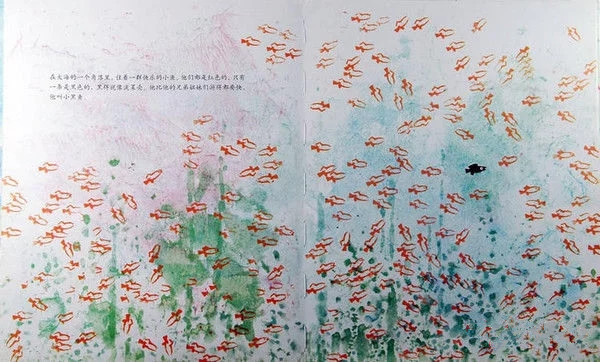 在大海的一个角落里，住着一群快乐的小鱼。他们都是红色的，只有
一条是黑色的，黑得就像淡菜壳。他比他的兄弟姐妹们游得都要快。
他叫小黑鱼